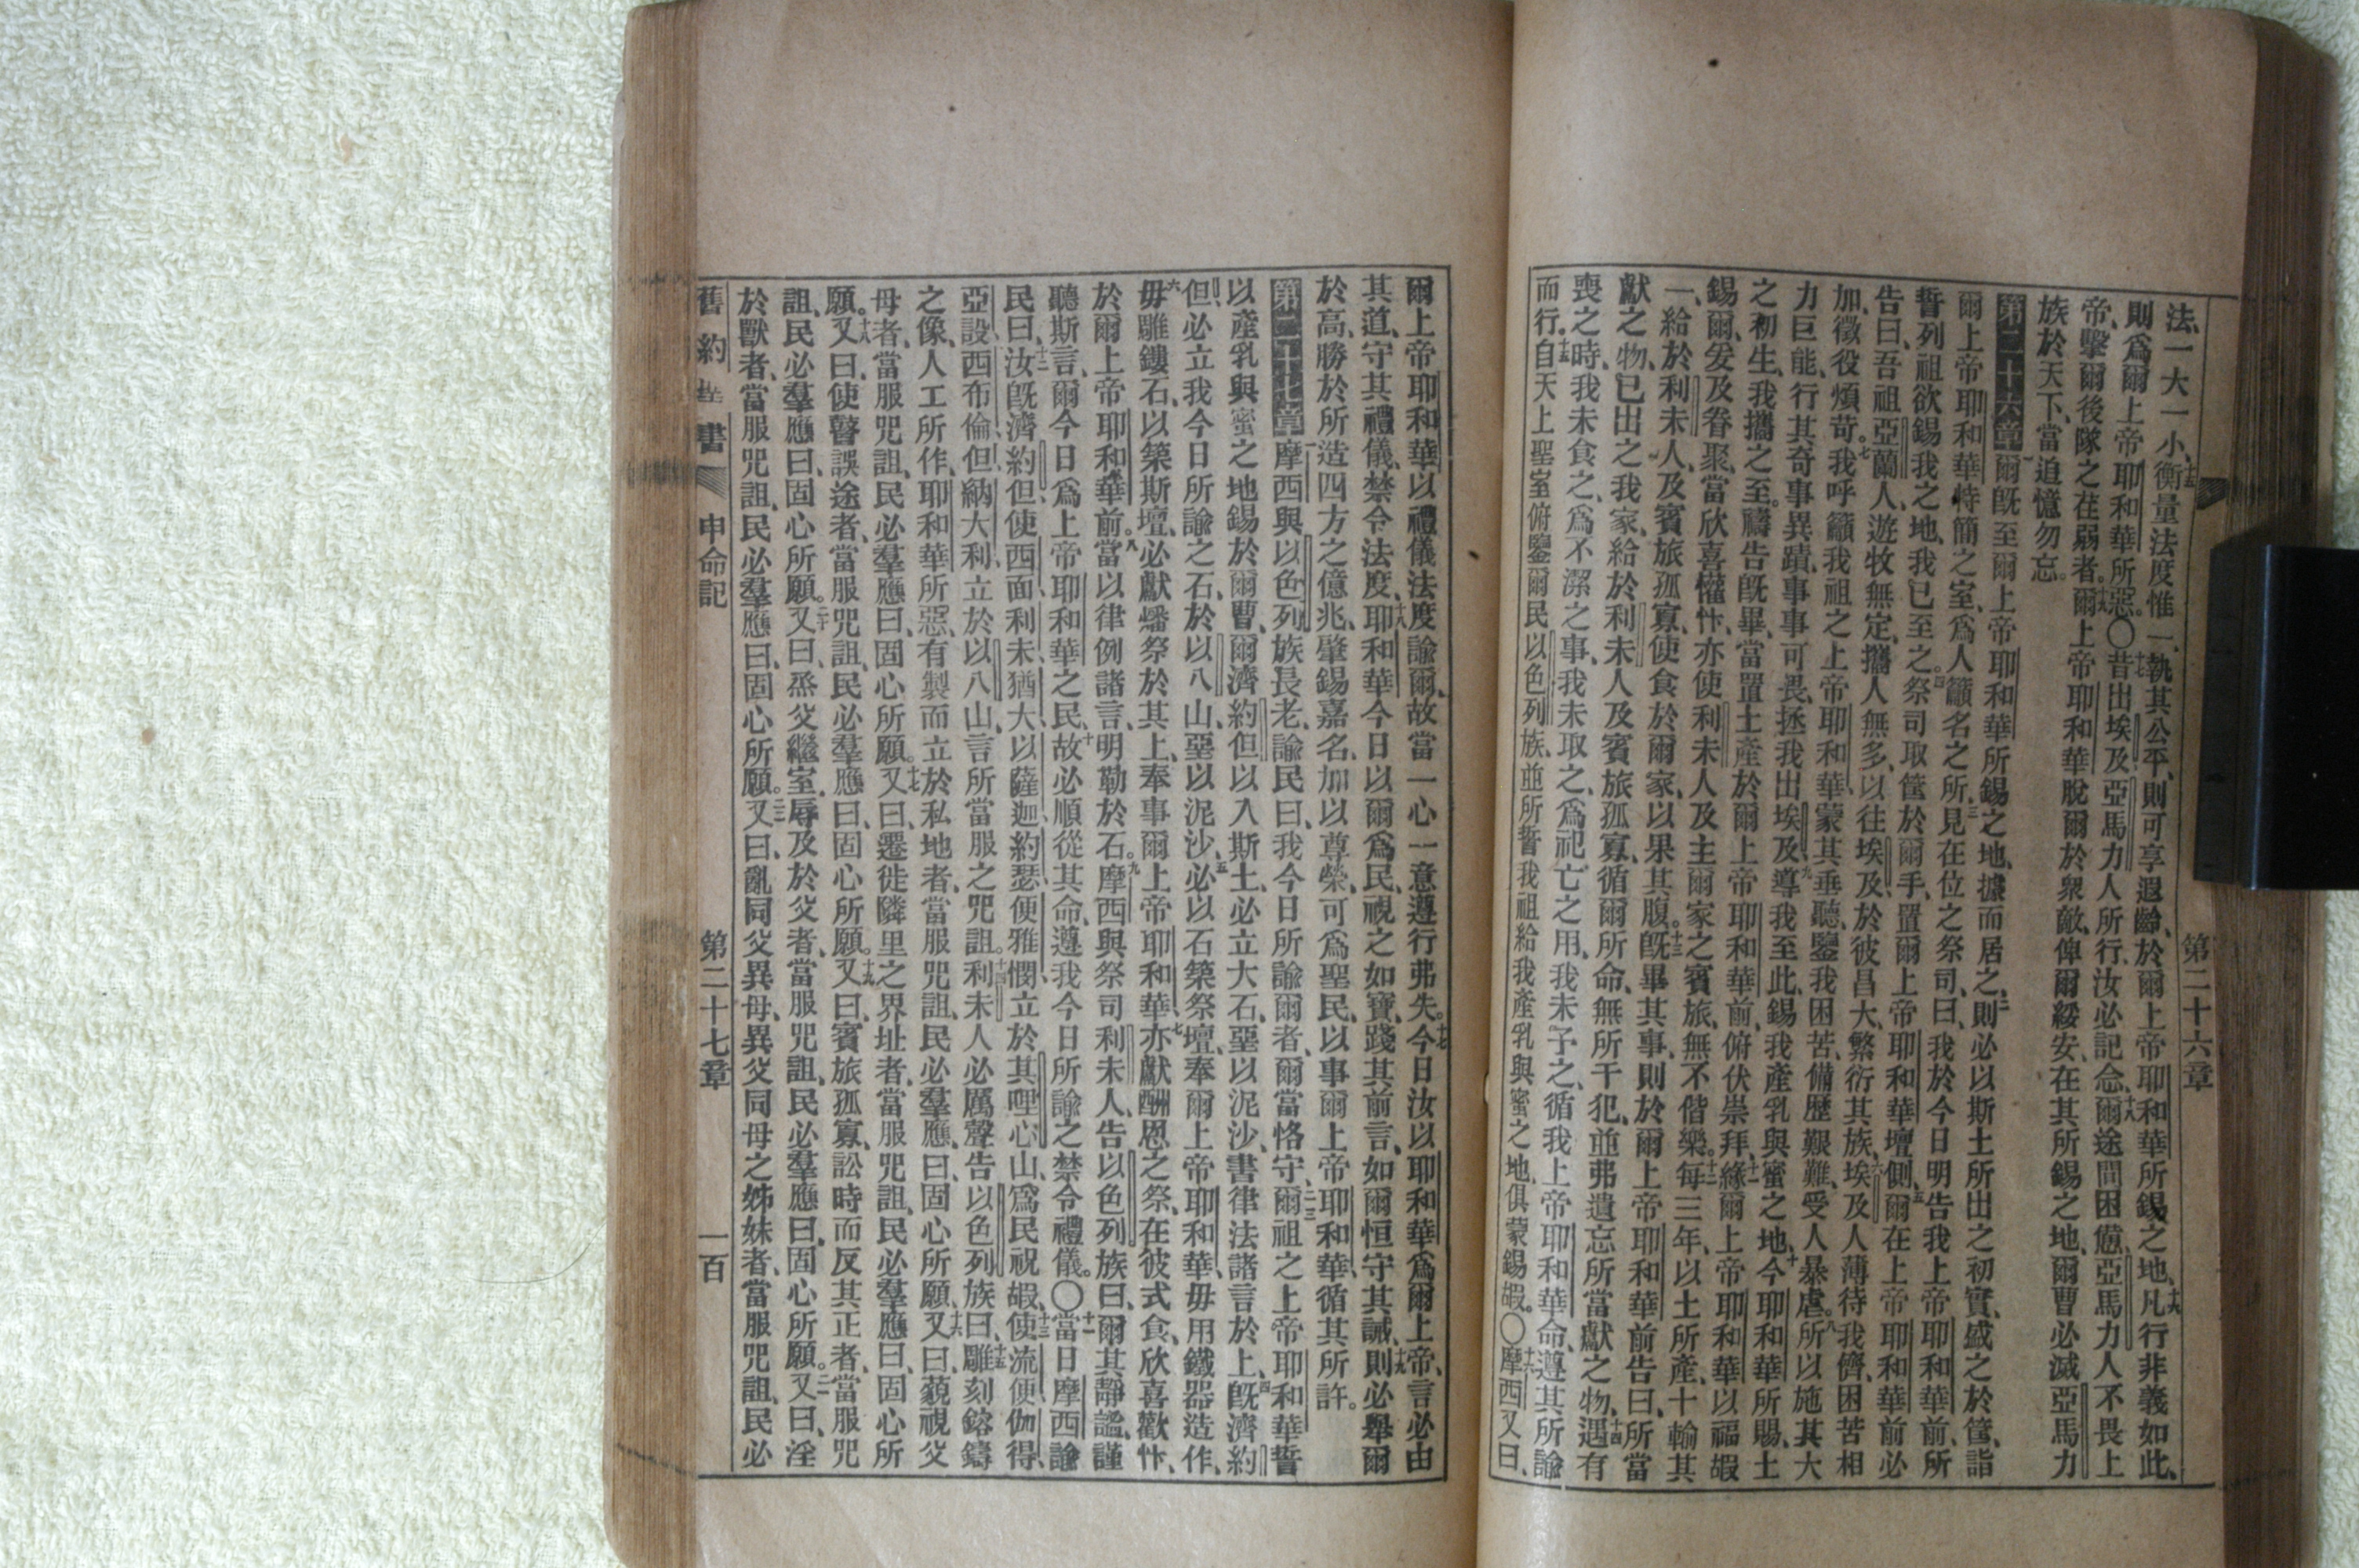 法、一大一小、十五衡量法度惟一、執其公平、則可享遐齡、於爾上帝耶和華所錫之地、十六凡行非義如此、
則爲爾上帝耶和華所惡。〇十七昔出埃及、亞馬力人所行、汝必記念、十八爾途間困憊、亞馬力人不畏上
帝、擊爾後隊之荏弱者。十九爾上帝耶和華脫爾於衆敵、俾爾綏安、在其所錫之地、爾曹必滅亞馬力
族於天下、當追憶勿忘。
第二十六章 一爾旣至爾上帝耶和華所錫之地、據而居之、二則必以斯土所出之初實、盛之於筐、詣
爾上帝耶和華特簡之室、爲人籲名之所、三見在位之祭司曰、我於今日明告我上帝耶和華前、所
誓列祖欲錫我之地、我已至之。四祭司取筐於爾手、置爾上帝耶和華壇側、五爾在上帝耶和華前必
告曰、吾祖亞蘭人、遊牧無定、攜人無多、以往埃及、於彼昌大繁衍其族、六埃及人薄待我儕、困苦相
加、徵役煩苛。七我呼籲我祖之上帝耶和華、蒙其垂聽、鑒我困苦、備歷艱難、受人暴虐。八所以施其大
力巨能、行其奇事異蹟、事事可畏、拯我出埃及、九導我至此、錫我產乳與蜜之地、十今耶和華所賜、土
之初生、我攜之至。禱告旣畢、當置土產於爾上帝耶和華前、俯伏崇拜、十一緣爾上帝耶和華以福嘏
錫爾、爰及眷聚、當欣喜懽忭、亦使利未人及主爾家之賓旅、無不偕樂。十二每三年、以土所產、十輸其
一、給於利未人、及賓旅孤寡、使食於爾家、以果其腹。十三旣畢其事、則於爾上帝耶和華前告曰、所當
獻之物、已出之我家、給於利未人及賓旅孤寡、循爾所命、無所干犯、並弗遺忘所當獻之物、十四遇有
喪之時、我未食之、爲不潔之事、我未取之、爲祀亡之用、我未予之、循我上帝耶和華命、遵其所諭
而行。十五自天上聖室俯鑒爾民以色列族、並所誓我祖給我產乳與蜜之地、俱蒙錫嘏。〇十六摩西又曰、
第二十六章
爾上帝耶和華以禮儀法度諭爾、故當一心一意遵行弗失。十七今日汝以耶和華爲爾上帝、言必由
其道、守其禮儀、禁令法度、十八耶和華今日以爾爲民、視之如寶、踐其前言、如爾恒守其誡、十九則必舉爾
於高、勝於所造四方之億兆、肇錫嘉名、加以尊榮、可爲聖民、以事爾上帝耶和華、循其所許。
第二十七章 一摩西與以色列族長老、諭民曰、我今日所諭爾者、爾當恪守、二三爾祖之上帝耶和華誓
以產乳與蜜之地錫於爾曹、爾濟約但以入斯土、必立大石、堊以泥沙、書律法諸言於上、四旣濟約
但、必立我今日所諭之石、於以八山、堊以泥沙、五必以石築祭壇、奉爾上帝耶和華、毋用鐵器造作、
六毋雕鏤石、以築斯壇、必獻燔祭於其上、奉事爾上帝耶和華、七亦獻酬恩之祭、在彼式食、欣喜歡忭、
於爾上帝耶和華前。八當以律例諸言、明勒於石。九摩西與祭司利未人、告以色列族曰、爾其靜謐、謹
聽斯言、爾今日爲上帝耶和華之民、十故必順從其命、遵我今日所諭之禁令禮儀。〇十一當日摩西諭
民曰、十二汝旣濟約但、使西面利未猶大以薩迦約瑟便雅憫、立於其哩心山、爲民祝嘏、十三使流便伽得
亞設西布倫但納大利、立於以八山、言所當服之咒詛。十四利未人必厲聲告以色列族曰、十五雕刻鎔鑄
之像、人工所作、耶和華所惡、有製而立於私地者、當服咒詛、民必羣應曰、固心所願、十六又曰、藐視父
母者、當服咒詛、民必羣應曰、固心所願。十七又曰、遷徙隣里之界址者、當服咒詛、民必羣應曰、固心所
願。十八又曰、使瞽誤途者、當服咒詛、民必羣應曰、固心所願。十九又曰、賓旅孤寡、訟時而反其正者、當服咒
詛、民必羣應曰、固心所願。二十又曰、烝父繼室、辱及於父者、當服咒詛、民必羣應曰、固心所願。二一又曰、淫
於獸者、當服咒詛、民必羣應曰、固心所願。二二又曰、亂同父異母、異父同母之姊妹者、當服咒詛、民必
舊約 書 申命記 第二十七章 一百